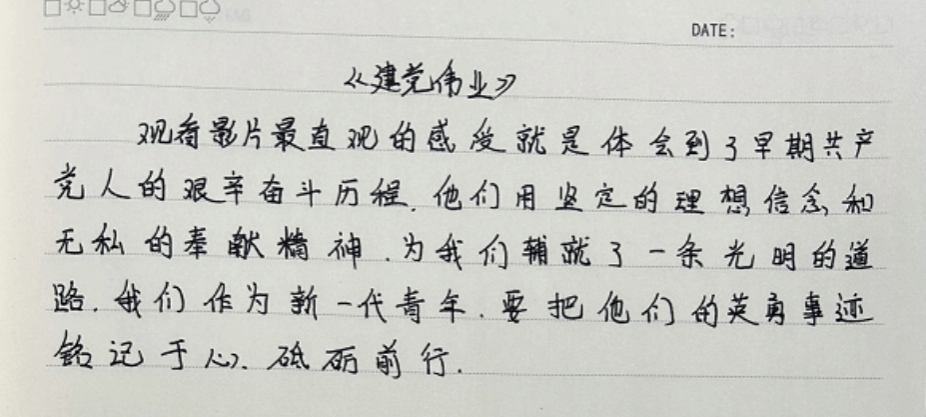 DATE:
《建党伟业》
观看影片最直观的感受就是体会到了早期共产
党人的艰辛奋斗历程.他们用坚定的理想信念和
无私的奉献精神.为我们辅就了一条光明的道
路.我们作为新一代青年.要把他们的英勇事迹
铭记于心.砥砺前行.